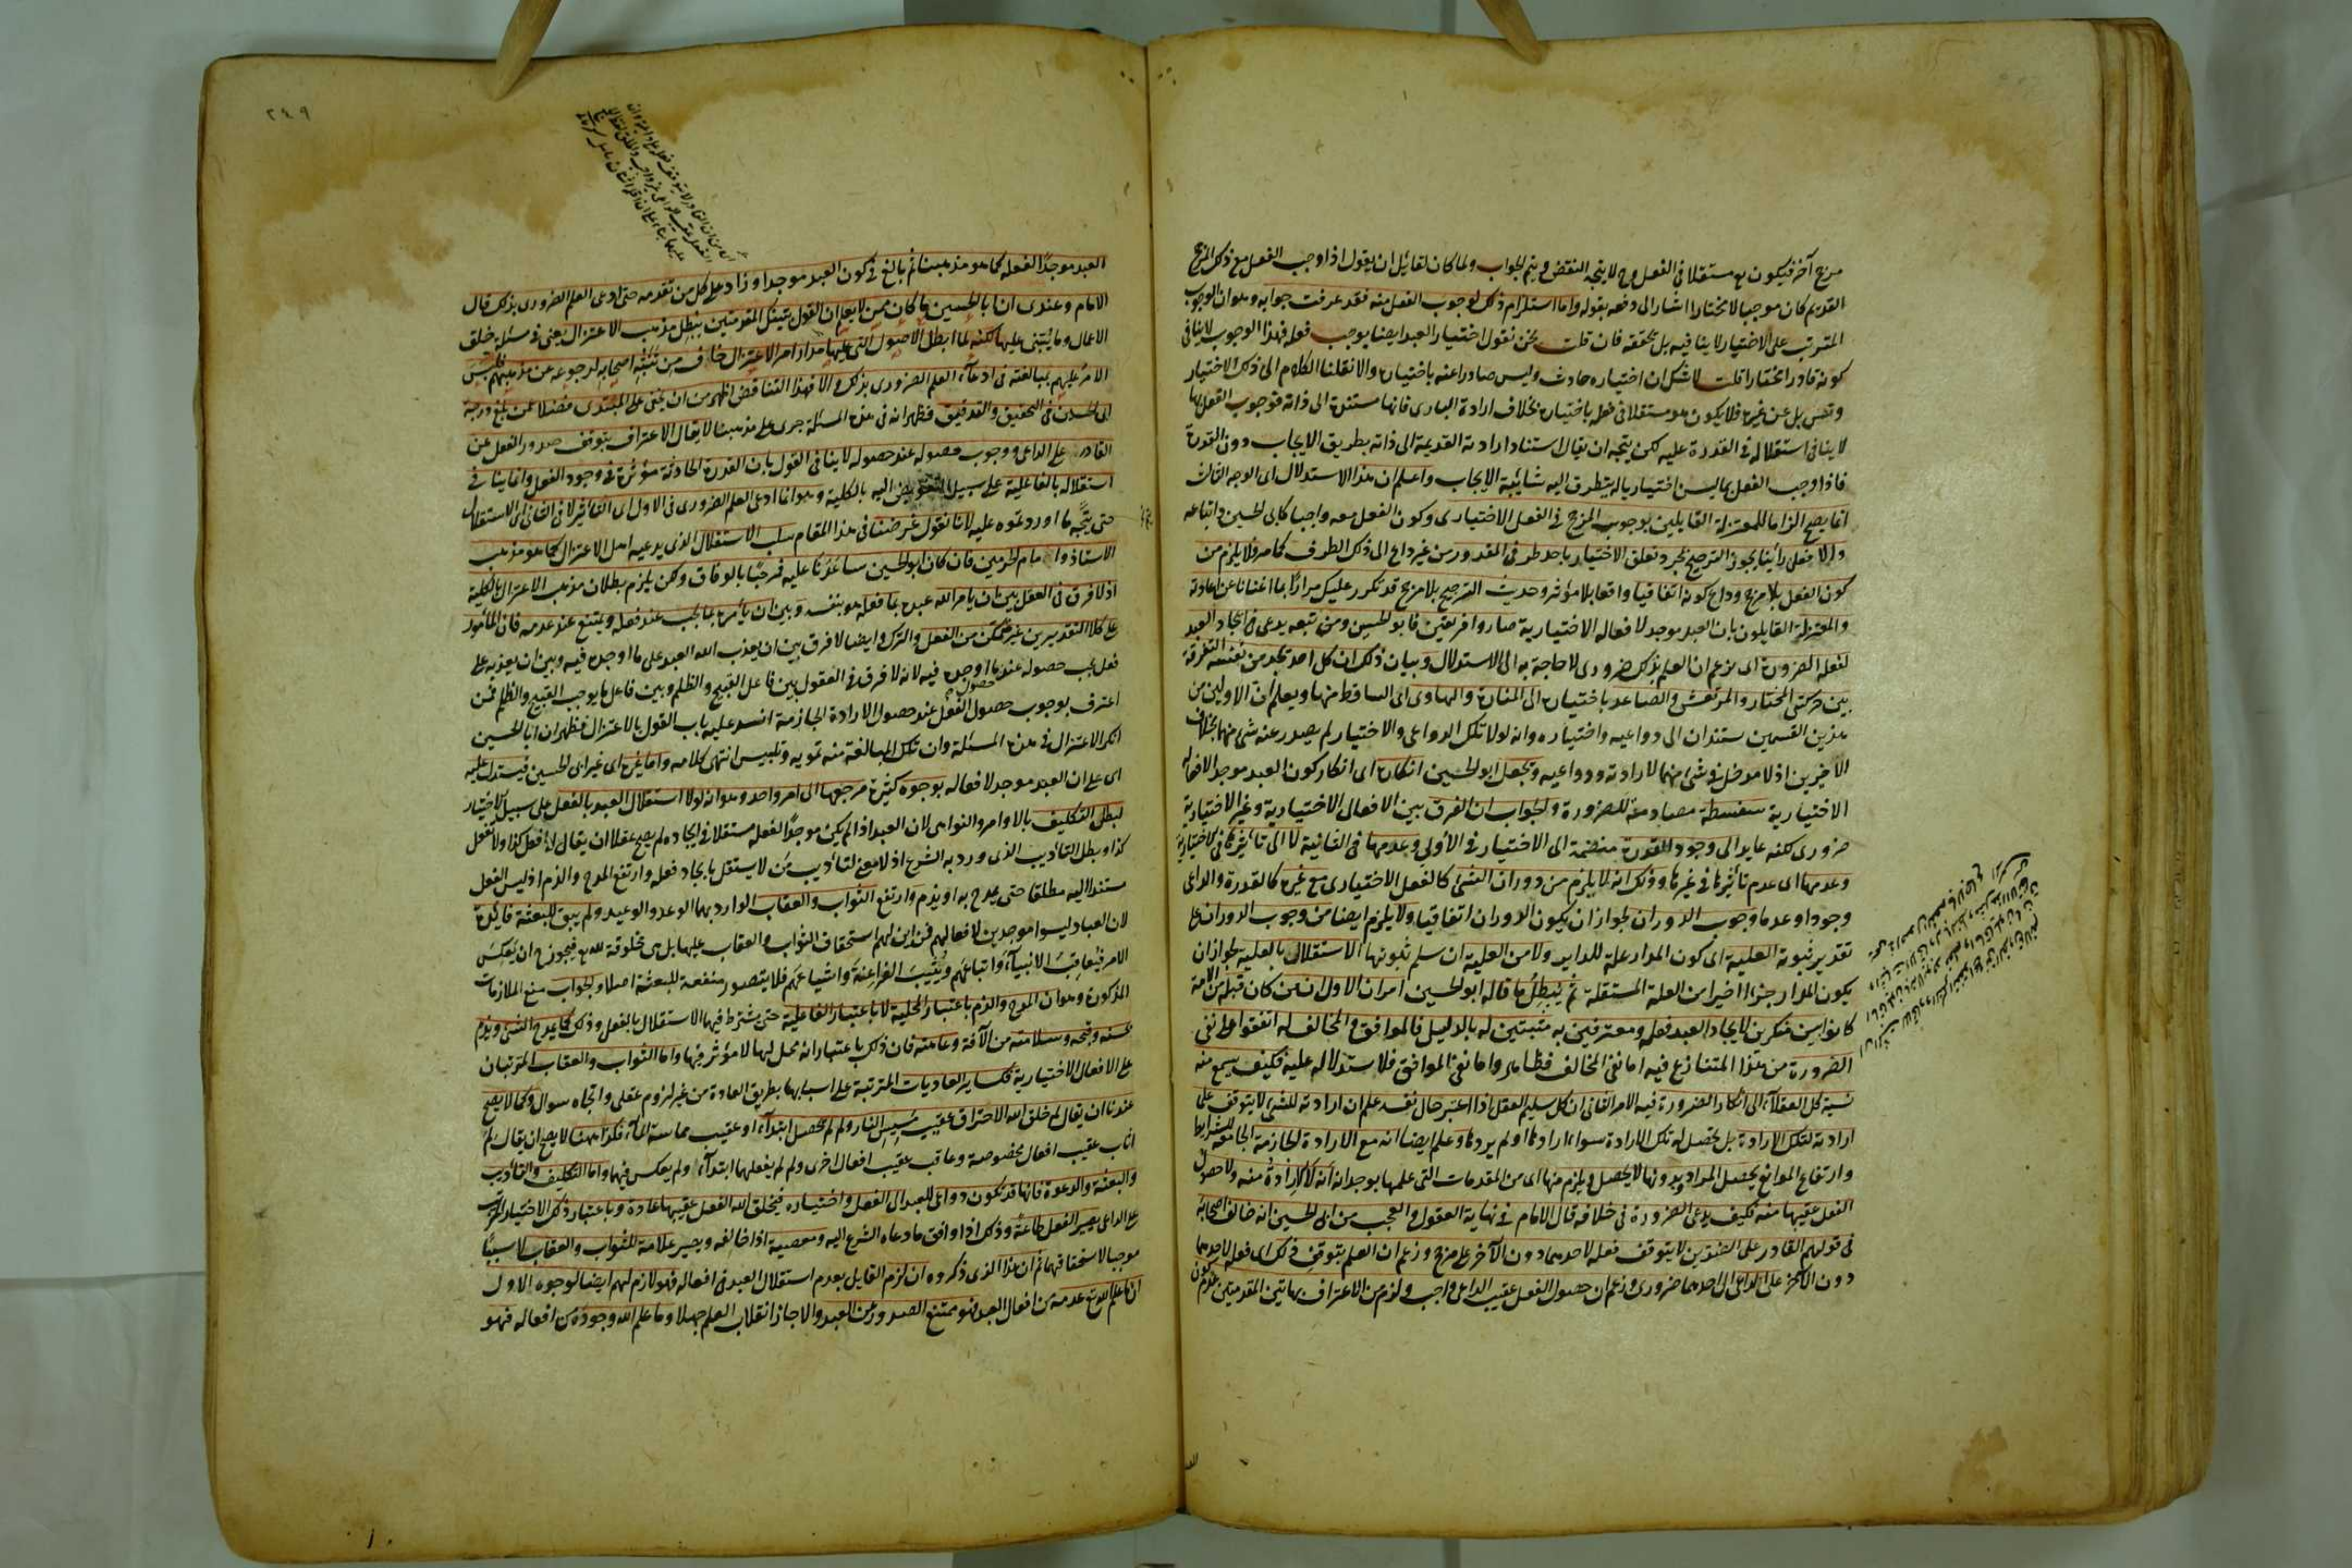 مرجح آخر فيكون مع مستقلا فى الفعل وح لا يتجه النقض ويتم الجواب ولما كان لقائل ان يقول اذا وجب الفعل مع ذلك المرجح
القديم كان موجبا لا مختارا اشار الى دفعه بقوله واما استلزام ذلك لوجوب الفعل منه فقد عرفت جوابه وهو ان الوجوب
المترتب على الاختيار لا ينافيه بل يحققه فان قلت نحن نقول اختيار العبد ايضا يوجب فعله فهذا الوجوب لا ينافى
كونه قادرا مختارا قلت لا شك ان اختياره حادث وليس صادرا عنه باختياره والا نقلنا الكلام الى ذلك الاختيار
وتس بل عن غيره فلا يكون هو مستقلا فى فعله باختياره بخلاف ارادة البارى فانها مستندة الى ذاته فوجوب الفعل بها
لا ينافى استقلاله فى القدرة عليه لكن يتجه ان يقال استناد ارادته القديمة الى ذاته بطريق الايجاب دون القدرة
فاذا وجب الفعل بما ليس اختياريا له يتطرق اليه شائبة الايجاب واعلم ان هذا الاستدلال اى الوجه الثالث
انما يصح الزاما للمعتزلة القايلين بوجوب المرجح فى الفعل الاختيارى وكون الفعل معه واجبا كابى الحسين واتباعه
والا فعلى رأينا يجوز الترجيح بمجرد تعلق الاختيار باحد طرفى المقدور من غير داع الى ذلك الطرف كما مر فلا يلزم من
كون الفعل بلا مرجح وداع كونه اتفاقيا واقعا بلا مؤثر وحديث الترجيح بلا مرجح قد تكرر عليك مرارا بما اغنانا عن اعادته
والمعتزلة القايلون بان العبد موجد لافعاله الاختيارية صاروا فريقين فابو الحسين ومن تبعه يدعى فى ايجاد العبد
لفعله الضرورة اى يزعم ان العلم بذلك ضرورى لا حاجة به الى الاستدلال وبيان ذلك ان كل احد يجد من نفسه التفرقة
بين حركتى المختار والمرتعش والصاعد باختياره الى المنارة والهاوى اى الساقط منها ويعلم ان الاولين من
هذين القسمين يستندان الى دواعيه واختياره وانه لولا تلك الدواعى والاختيار لم يصدر عنه شئ منهما بخلاف
الاخيرين اذ لا مدخل فى شئ منهما لارادته ودواعيه ويجعل ابو الحسين انكاره اى انكار كون العبد موجدا لافعاله
الاختيارية سفسطة مصادمة للضرورة والجواب ان الفرق بين الافعال الاختيارية وغير الاختيارية
ضرورى لكنه عايد الى وجود القدرة منضمة الى الاختيار فى الاولى وعدمها فى الثانية لا الى تأثيرها فى الاختيارية
وعدمها اى عدم تأثيرها فى غيرها وذلك انه لا يلزم من دوران الشئ كالفعل الاختيارى مع غيره كالقدرة والداعى
وجودا وعدما وجوب الدوران لجواز ان يكون الدوران اتفاقيا ولا يلزم ايضا من وجوب الدوران على
تقدير ثبوته العلية اى كون المدار علة للداير ولا من العلية ان سلم ثبوتها الاستقلال بالعلية لجواز ان
يكون المدار جزءا اخيرا من العلة المستقلة ثم يبطل ما قاله ابو الحسين امران الاول ان من كان قبله من الامة
كانوا بين منكرين لايجاد العبد فعله ومعترفين به مثبتين له بالدليل فالموافق والمخالف له اتفقوا على نفى
الضرورة من هذا المتنازع فيه اما نفى المخالف فظاهر واما نفى الموافق فلاستدلاله عليه فكيف يسمع منه
نسبة كل العقلاء الى انكار الضرورة فيه الامر الثانى ان كل سليم العقل اذا اعتبر حال نفسه علم ان ارادته للشئ لا يتوقف على
ارادته لتلك الارادة بل يحصل له تلك الارادة سواء ارادها او لم يردها وعلم ايضا انه مع الارادة الجازمة الجامعة للشرايط
وارتفاع الموانع يحصل المراد وبدونها لا يحصل ويلزم منها اى من المقدمات التى علمها بوجدانه انه لا الارادة منه ولا حصول
الفعل عقيبها منه فكيف يدعى الضرورة فى خلافه قال الامام فى نهاية العقول والعجب من ابى الحسين انه خالف اصحابه
فى قولهم القادر على الضدين لا يتوقف فعله لاحدهما دون الآخر على مرجح وزعم ان العلم بتوقف ذلك اى فعله لاحدهما
دون الآخر على الداعى الى احدهما ضرورى وزعم ان حصول الفعل عقيب الداعى واجب ولزم من الاعتراف بهاتين المقدمتين عدم كون
٢٤٩
العبد موجدا لفعله كما هو مذهبنا ثم بالغ فى كون العبد موجدا وزاد على كل من تقدمه حتى ادعى العلم الضرورى بذلك قال
الامام وعندى ان ابا الحسين ما كان ممن لا يعلم ان القول بتينك المقدمتين يبطل مذهب الاعتزال يعنى فى مسئلة خلق
الاعمال وما يبتنى عليها لكنه لما ابطل الاصول التى عليها مدار امر الاعتزال خاف من تنبه اصحابه لرجوعه عن مذهبهم فلبس
الامر عليهم بمبالغته فى ادعاء العلم الضرورى بذلك والا فهذا التناقض اظهر من ان يخفى على المبتدى فضلا عمن بلغ درجة
ابى الحسين فى التحقيق والتدقيق فظهر انه فى هذه المسئلة جرى على مذهبنا لا يقال الاعتراف بتوقف صدور الفعل عن
القادر على الداعى ووجوب حصوله عند حصوله لا ينافى القول بان القدرة الحادثة مؤثرة فى وجود الفعل وانما ينافى
استقلاله بالفاعلية على سبيل التفويض اليه بالكلية وهو انما ادعى العلم الضرورى فى الاول اى التأثير لا فى الثانى اى الاستقلال
حتى يتجه ما اوردتموه عليه لانا نقول غرضنا فى هذا المقام سلب الاستقلال الذى يدعيه اهل الاعتزال كما هو مذهب
الاستاذ وامام الحرمين فان كان ابو الحسين ساعدنا عليه فمرحبا بالوفاق ولكن يلزم بطلان مذهب الاعتزال بالكلية
اذ لا فرق فى العقل بين ان يأمر الله عبده بما فعله هو بنفسه وبين ان يأمره بما يجب عند فعله ويمتنع عند عدمه فان المأمور
على كلا التقديرين غير متمكن من الفعل والترك وايضا لا فرق بين ان يعذب الله العبد على ما اوجده فيه وبين ان يعذبه على
فعل يجب حصوله عند ما اوجده فيه لانه لا فرق فى العقول بين فاعل القبيح والظلم وبين فاعل ما يوجب القبيح والظلم فمن
اعترف بوجوب حصول الفعل عند حصول الارادة الجازمة انسد عليه باب القول بالاعتزال فظهر ان ابا الحسين
انكر الاعتزال فى هذه المسئلة وان تلك المبالغة منه تمويه وتلبيس انتهى كلامه واما غيره اى غير ابى الحسين فيستدل عليه
اى على ان العبد موجد لافعاله بوجوه كثيرة مرجعها الى امر واحد وهو انه لولا استقلال العبد بالفعل على سبيل الاختيار
لبطل التكليف بالاوامر والنواهى لان العبد اذا لم يكن موجدا لفعله مستقلا فى ايجاده لم يصح عقلا ان يقال له افعل كذا ولا تفعل
كذا وبطل التأديب الذى ورد به الشرع اذ لا معنى لتأديب من لا يستقل بايجاد فعله وارتفع المدح والذم اذ ليس الفعل
مستندا اليه مطلقا حتى يمدح به او يذم وارتفع الثواب والعقاب الوارد بهما الوعد والوعيد ولم يبق للبعثة فائدة
لان العباد ليسوا موجدين لافعالهم فمن اين لهم استحقاق الثواب والعقاب عليها بل هى مخلوقة لله تع فيجوز ح ان يعكس
الامر فيعاقب الانبياء واتباعهم ويثيب الفراعنة واشياعهم فلا يتصور منفعة للبعثة اصلا والجواب منع الملازمات
المذكورة وهو ان المدح والذم باعتبار المحلية لا باعتبار الفاعلية حتى يشترط فيها الاستقلال بالفعل وذلك كما يمدح الشئ ويذم
بحسنه وقبحه وسلامته من الآفة وعاهته فان ذلك باعتبار انه محل لها لا مؤثر فيها واما الثواب والعقاب المترتبان
على الافعال الاختيارية فكساير العاديات المترتبة على اسبابها بطريق العادة من غير لزوم عقلى واتجاه سوال وكما لا يصح
عندنا ان يقال لم خلق الله الاحتراق عقيب مسيس النار ولم لم يحصل ابتداء او عقيب مماسة الماء فكذا ههنا لا يصح ان يقال لم
اثاب عقيب افعال مخصوصة وعاقب عقيب افعال اخرى ولم لم يفعلهما ابتداء ولم يعكس فيهما واما التكليف والتأديب
والبعثة والدعوة فانها قد تكون دواعى للعبد الى الفعل واختياره فيخلق الله الفعل عقيبها عادة وباعتبار ذلك الاختيار المترتب
على الداعى يصير الفعل طاعة وذلك اذا وافق ما دعاه الشرع اليه ومعصية اذا خالفه ويصير علامة للثواب والعقاب لا سببا
موجبا لاستحقاقهما ثم ان هذا الذى ذكروه ان لزم القايل بعدم استقلال العبد فى افعاله فهو لازم لهم ايضا لوجوه الاول
ان ما علم الله تع عدمه من افعال العبد فهو ممتنع الصدور عن العبد والا جاز انقلاب العلم جهلا وما علم الله وجوده من افعاله فهو